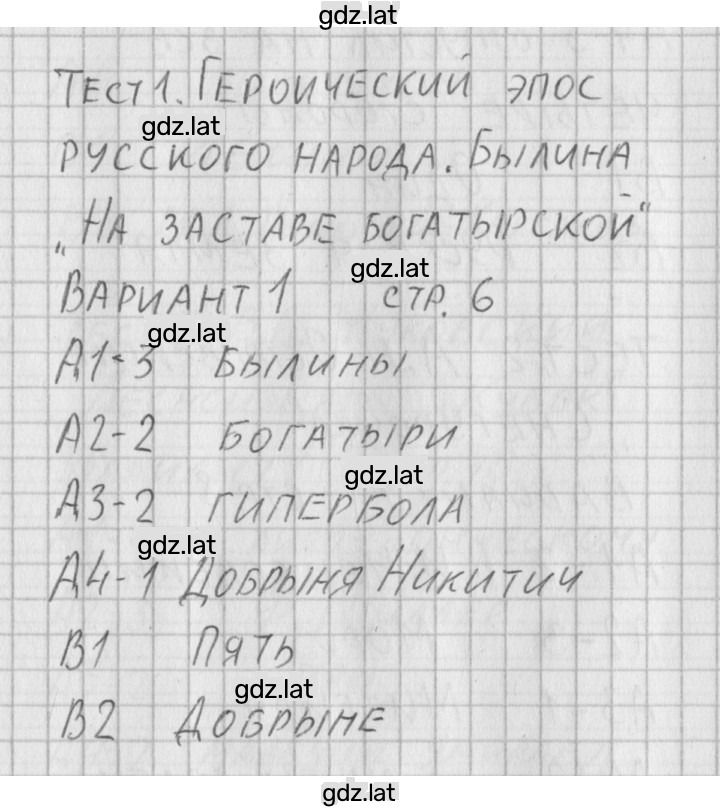 gdz.lat
Тест 1. Героический эпос
gdz.lat
русского народа. Былина
„На заставе богатырской"
gdz.lat
Вариант 1 стр. 6
gdz.lat
А1-3 Былины
А2-2 богатыри
gdz.lat
А3-2 гипербола
gdz.lat
А4-1 Добрыня Никитич
В1 Пять
gdz.lat
В2 Добрыне
gdz.lat